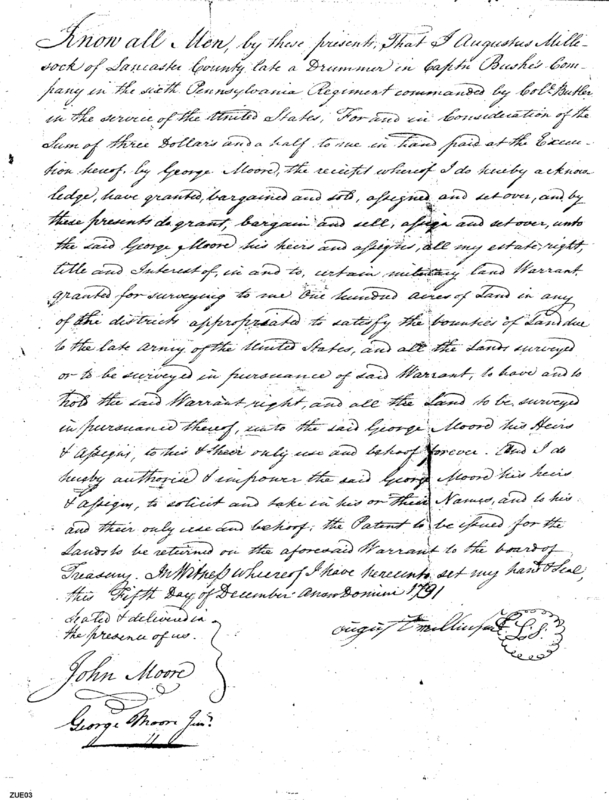 Know all Men, by these presents, That I Augustus Mille-
sock of Lancaster County, late a Drummer in Captn Bushe's Com-
pany in the sixth Pennsylvania Regiment commanded by Colo. Butler
in the service of the United States, For and in Consideration of the
Sum of three Dollars and a half to me in hand paid at the Execu-
tion hereof, by George Moore, the receipt whereof I do hereby acknow-
ledge, have granted, bargained and sold, assigned and set over, and by
these presents do grant, bargain and sell, assign and set over, unto
the said George Moore his heirs and assigns, all my estate, right,
title and Interest of, in and to, certain military land Warrant
granted for surveying to me One hundred acres of Land in any
of the districts appropriated to satisfy the bounties of Land due
to the late Army of the United States, and all the Lands surveyed
or to be surveyed in pursuance of said Warrant, to have and to
hold the said Warrant right, and all the Land to be surveyed
in pursuance thereof, unto the said George Moore his Heirs
& assigns, to his & their only use and behoof forever. And I do
hereby authorise & impower the said George Moore his heirs
& assigns, to solicit and take in his or their Names, and to his
and their only use and behoof; the Patent to be issued for the
Lands to be returned on the aforesaid Warrant to the board of
Treasury. In Witness whereof I have hereunto set my hand & Seal,
this Fifth Day of December Anno Domini 1791
Sealed & delivered in
the presence of us.
August L.S.
John Moore
George Moore Junr.
ZUE03